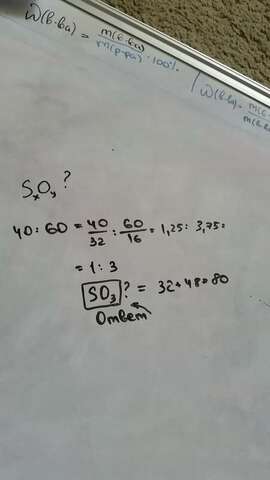 ω(в-ва) = m(в-ва) / m(р-ра) · 100%
ω(в-ва) = m(в-ва) / m(
SxOy ?
40 : 60 = 40/32 : 60/16 = 1,25 : 3,75 =
= 1 : 3
SO3 ? = 32 + 48 = 80
Ответ